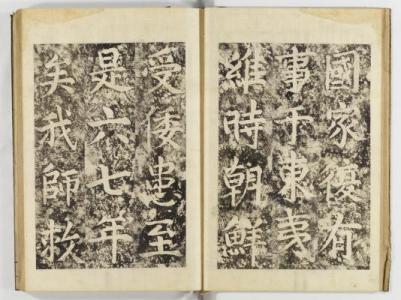 國家復有
事于東夷
維時朝鮮
受倭患至
是六七年
矣我師救